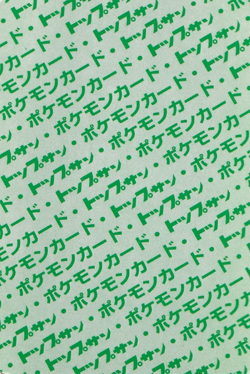 ポケモンカード・トップサン
トップサン・ポケモンカード
ポケモンカード・トップサン
トップサン・ポケモンカード・
ポケモンカード・トップサン・
トップサン・ポケモンカード・
ポケモンカード・トップサン・
トップサン・ポケモンカード・
ポケモンカード・トップサン・
トップサン・ポケモンカード・
ポケモンカード・トップサン
トップサン・ポケモンカード